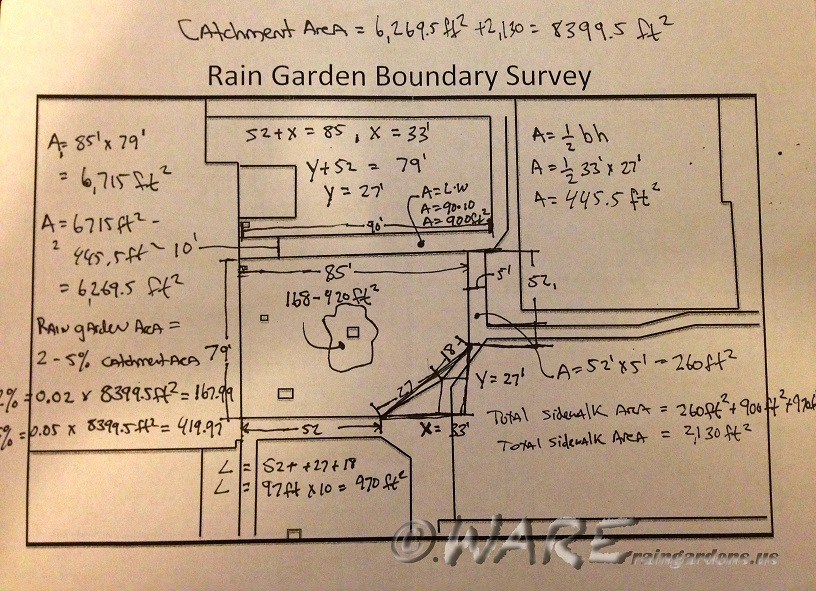 Catchment Area = 6,269.5 ft² + 2,130 = 8399.5 ft²
Rain Garden Boundary Survey
A = 85' x 79'
= 6,715 ft²
A = 6715 ft² -
445.5 ft²
= 6,269.5 ft²
Rain garden Area =
2-5% catchment Area
2% = 0.02 x 8399.5 ft² = 167.99
5% = 0.05 x 8399.5 ft² = 419.97
52 + x = 85, x = 33'
Y + 52 = 79'
Y = 27'
A = L·W
A = 90·10
A = 900 ft²
90'
10'
85'
168-420 ft²
79'
52
27
18
X = 33'
Y = 27'
5'
52,
A = ½ bh
A = ½ 33' x 27'
A = 445.5 ft²
A = 52' x 5' = 260 ft²
Total Sidewalk Area = 260 ft² + 900 ft² + 970 f
Total Sidewalk Area = 2,130 ft²
L = 52 + + 27 + 18
L = 97 ft x 10 = 970 ft²
©.WARE
raingardens.us